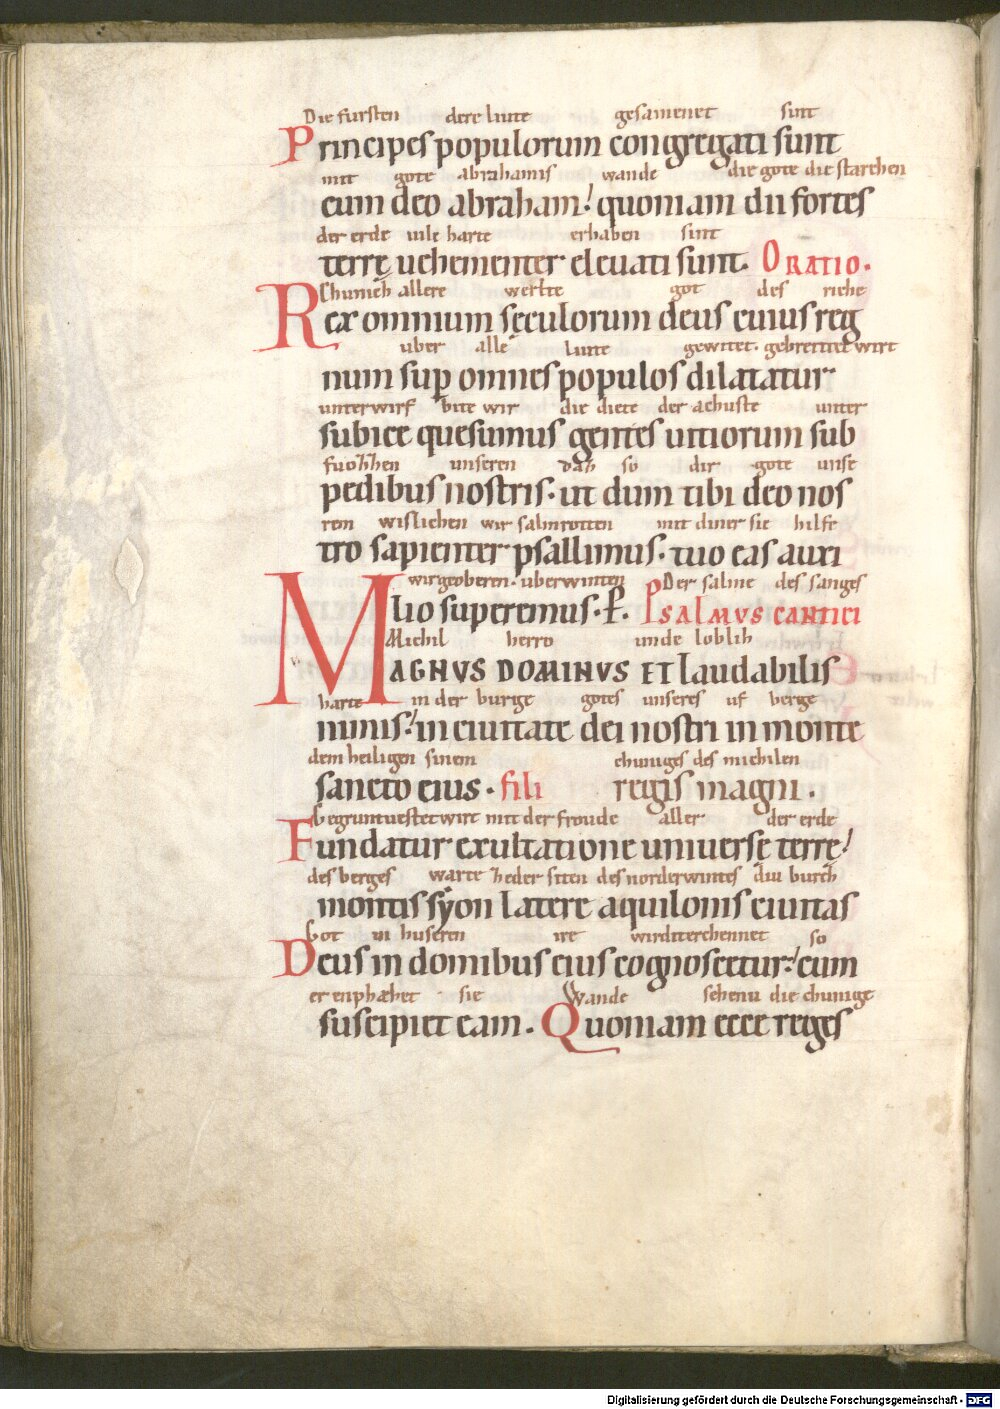 Die fursten dere liute gesamenet sint
Principes populorum congregati sunt
mit gote abrahamis wande die gote die starchen
cum deo abraham! quoniam dii fortes
der erde uile harte erhaben sint
terrę uehementer eleuati sunt. ORATIO.
Chunich allere werlte got des riche
Rex omnium sęculorum deus cuius reg
uber alle liute gewitet. gebreitet wirt
num sup omnes populos dilatatur
unterwirf bite wir die diete der achuste unter
subice quesumus gentes uitiorum sub
fuozzen unseren daz so dir gote unse
pedibus nostris. ut dum tibi deo nos
rem wislichen wir salmrotten mit diner sie hilfe
tro sapienter psallimus. tuo eas auxi
wir geoberen. uberwinten Der salme des sanges
lio superemus. P. PSALMVS CANTICI
Michil herro unde loblih
MAGNVS DOMINVS ET laudabilis
harte in der burge gotes unseres uf berge
nimis! in ciuitate dei nostri in monte
dem heiligen sinem chuniges des michilen
sancto eius. fili regis magni.
begruntuestet wirt mit der froude aller der erde
Fundatur exultatione uniuersę terrę!
des berges warte heder siten des norderwintes diu burch
montis syon latere aquilonis ciuitas
Got in huseren ire wirdit erchennet so
Deus in domibus eius cognoscetur! cum
er enphæhet sie Wande sehenu die chunige
suscipiet eam. Quoniam ecce reges
Digitalisierung gefördert durch die Deutsche Forschungsgemeinschaft - DFG